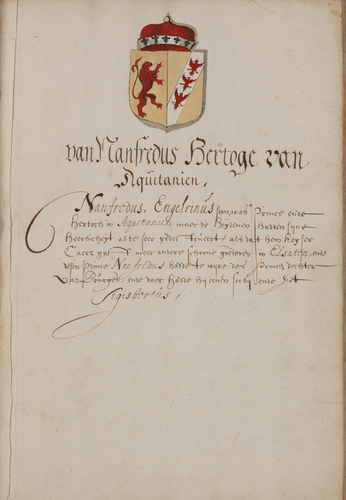 van Nanfredus Hertoge van
Aquitanien,
Nanfredus, Engelrinus soon, was Prince ende
Hertoch in Aquitanien maer de Heydenen hadden syne
alte seer gedestrueert, alsdat hem Keyser
Carel gaf meer andere schoone goederen in Elsaten, ende
desen Prince Nanfredus hadde te wyve des Princen dochter
van ende daer hadde hij eenen soo by, ende hiet
Sigisbertus,